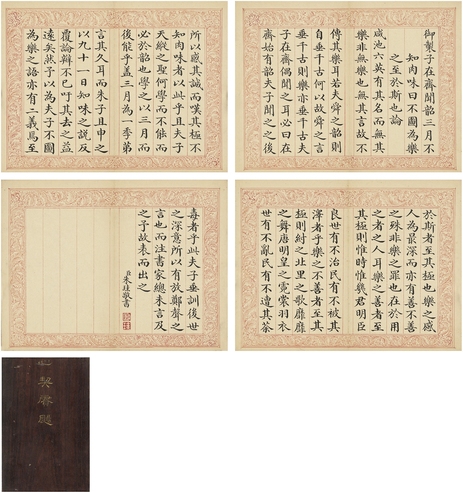 御製子在齊聞韶三月不
知肉味曰不圖為樂
之至於斯也論
咸池六英有其名而無其
樂非無樂也無其言故不
傳其樂耳若夫舜之韶則
自垂千古何以故舜之言
垂千古則樂亦垂千古夫
子在齊偶聞之耳必曰在
齊始有韶夫子聞之之後
所以感其誠而嘆其極不
知肉味者以此乎且夫子
天縱之聖何學而不能而
必於韶也學之以三月而
後能乎蓋三月為一季第
言其久耳而朱子且申之
以九十一日知味之說反
覆論辯不已吁其去之益
遠矣然予以為夫子不圖
為樂之語亦有二義焉至
於斯者至其極也樂之感
人為最深而亦有善不善
之殊非樂之罪也在於用
之者之人耳樂之善者至
其極則惟時惟幾君明臣
良世有不治民有不被其
澤者乎樂之不善者至其
極則紂之北里之歌靡靡
之舞唐明皇之霓裳羽衣
世有不亂民有不遭其荼
毒者乎此夫子垂訓後世
之深意所以有放鄭聲之
言也而注書家總未言及
之予故表而出之
臣朱珪敬書